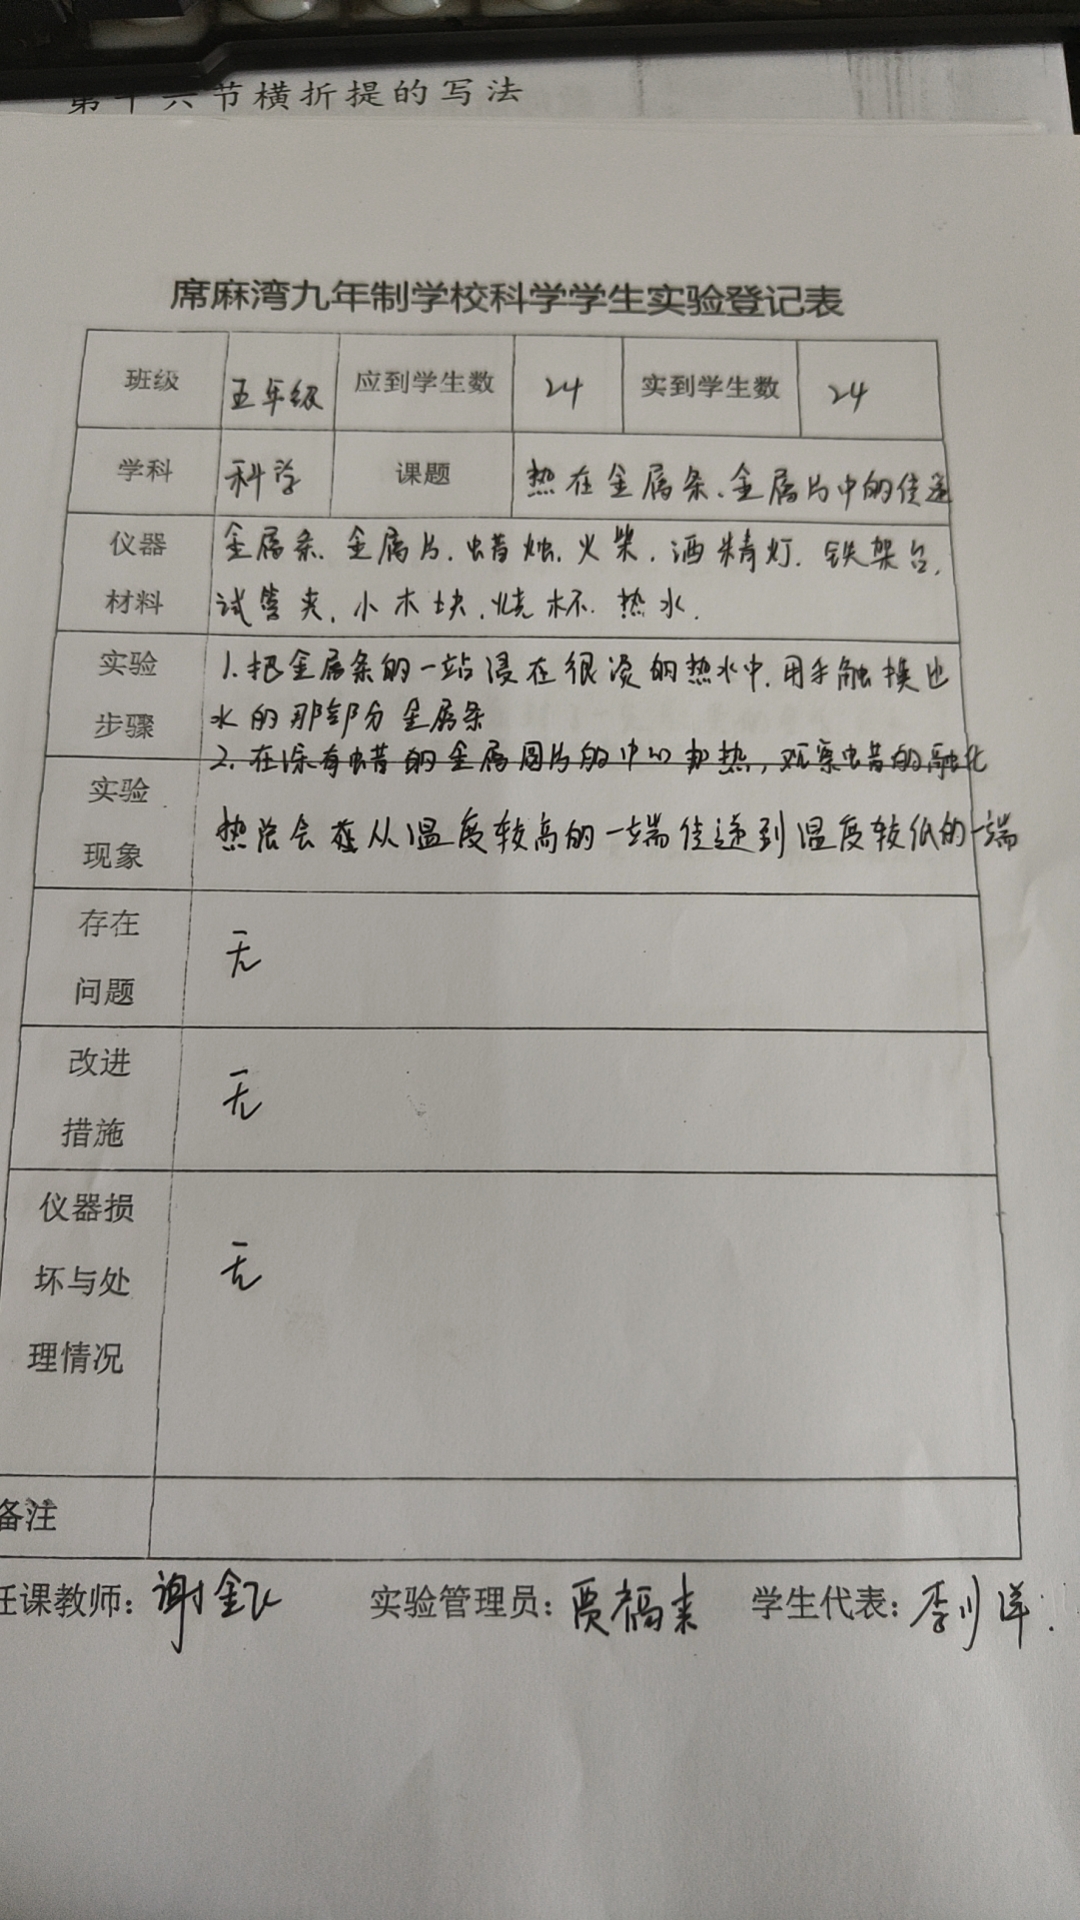 第十六节横折提的写法
席麻湾九年制学校科学学生实验登记表
班级 五年级 应到学生数 24 实到学生数 24
学科 科学 课题 热在金属条、金属片中的传递
仪器材料
金属条、金属片、蜡烛、火柴、酒精灯、铁架台、
试管夹、小木块、烧杯、热水.
实验步骤
1.把金属条的一端浸在很烫的热水中,用手触摸出
水的那部分金属条
2.在涂有蜡的金属圆片的中心加热,观察蜡的融化
实验现象
热会从温度较高的一端传递到温度较低的一端
存在问题
无
改进措施
无
仪器损坏与处理情况
无
备注
任课教师: 实验管理员:贾福来 学生代表:李